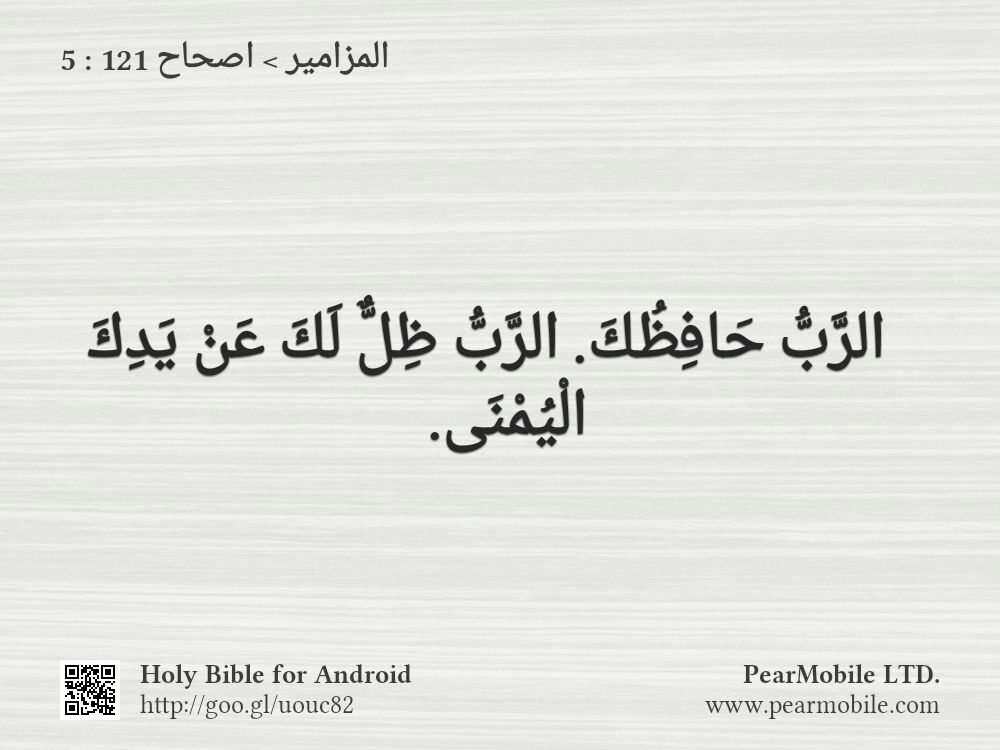 المزامير > اصحاح 121 : 5
الرَّبُّ حَافِظُكَ. الرَّبُّ ظِلٌّ لَكَ عَنْ يَدِكَ
الْيُمْنَى.
Holy Bible for Android
http://goo.gl/uouc82
PearMobile LTD.
www.pearmobile.com